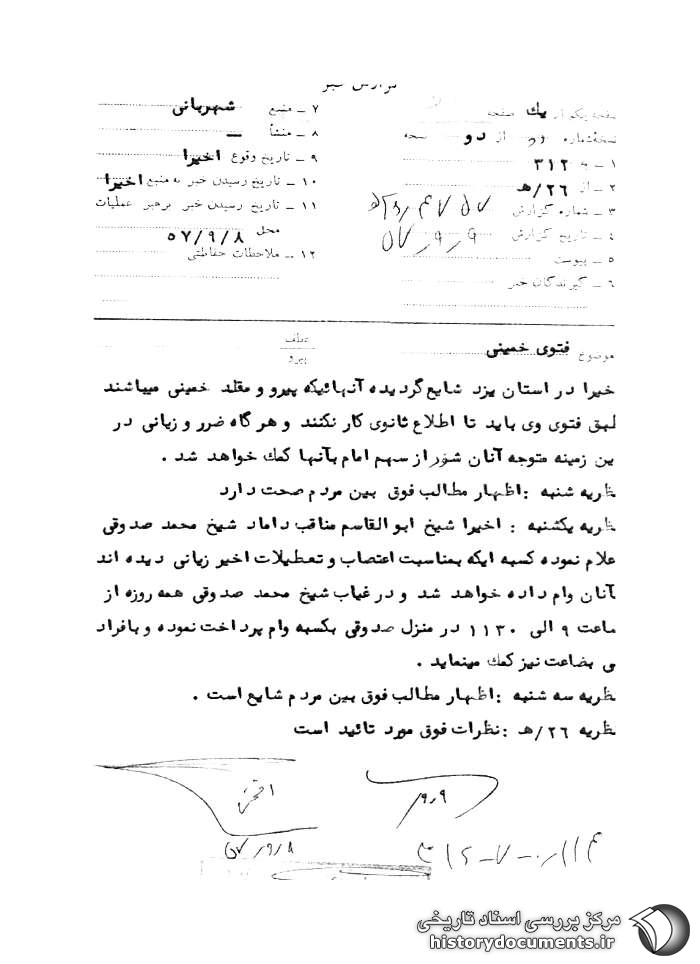 گزارش خبر
صفحه یکم از یك صفحه
نسخه شماره از دو نسخه
۱ - به ۳۱۲
۲ - از ۲۶/هـ
۳ - شماره گزارش
۴ - تاریخ گزارش ۵۷٫۹٫۹
۵ - پیوست
۶ - گیرندگان خبر
۷ - منبع شهربانی
۸ - منشأ —
۹ - تاریخ وقوع اخیرا
۱۰ - تاریخ رسیدن خبر به منبع اخیرا
۱۱ - تاریخ رسیدن خبر برهبر عملیات
محل ۵۷/۹/۸
۱۲ - ملاحظات حفاظتی
موضوع فتوی خمینی
عطف
پیرو
خیرا در استان یزد شایع گردیده آنهائیکه پیرو و مقلد خمینی میباشند
لبق فتوی وی باید تا اطلاع ثانوی کار نکنند و هرگاه ضرر و زیانی در
ین زمینه متوجه آنان شود از سهم امام بآنها کمك خواهد شد .
ظریه شنبه : اظهار مطالب فوق بین مردم صحت دارد
ظریه یکشنبه : اخیرا شیخ ابوالقاسم مناقب داماد شیخ محمد صدوقی
علام نموده کسبه ایکه بمناسبت اعتصاب و تعطیلات اخیر زیانی دیده اند
آنان وام داده خواهد شد و در غیاب شیخ محمد صدوقی همه روزه از
ساعت ۹ الی ۱۱۳۰ در منزل صدوقی بکسبه وام پرداخت نموده و بافراد
ی بضاعت نیز کمك مینماید .
ظریه سه شنبه : اظهار مطالب فوق بین مردم شایع است .
ظریه ۲۶/هـ : نظرات فوق مورد تائید است
۹٫۹
۵۷٫۹٫۸
مرکز بررسی اسناد تاریخی
historydocuments.ir